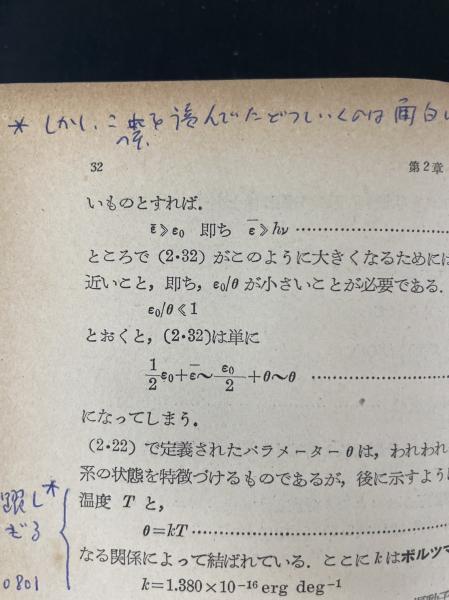 * しかし、これを読んでたどっていくのは面白い
32 第2章
いものとすれば.
ε̄≫ε₀ 即ち ε̄≫hν ……………………
ところで (2•32) がこのように大きくなるためには
近いこと，即ち，ε₀/θ が小さいことが必要である.
ε₀/θ≪1
とおくと，(2•32)は単に
1/2 ε₀+ε̄〜ε₀/2+θ〜θ ……………
になってしまう.
(2•22) で定義されたパラメーター θは，われわれ
系の状態を特徴づけるものであるが，後に示すよう
温度 T と，
θ=kT……………………………
なる関係によって結ばれている．ここに kはボルツマ
k=1.380×10⁻¹⁶ erg deg⁻¹
躍し*
ぎる
0801